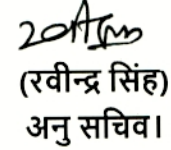 (रवीन्द्र सिंह)
अनु सचिव।